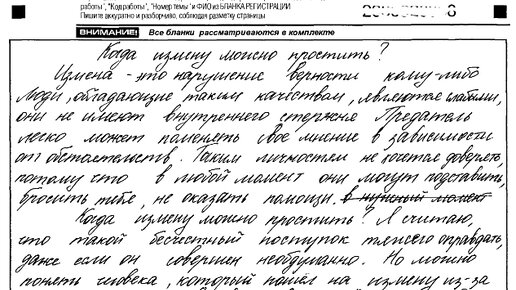 работы", "Код работы", "Номер темы" и ФИО из БЛАНКА РЕГИСТРАЦИИ
Пишите аккуратно и разборчиво, соблюдая разметку страницы
ВНИМАНИЕ! Все бланки рассматриваются в комплекте
Когда измену можно простить?
Измена - это нарушение верности кому-либо
Люди, обладающие таким качеством, являются слабыми,
они не имеют внутреннего стержня Предатель
легко может поменять свое мнение в зависимости
от обстоятельств. Таким личностям не хочется доверять,
потому что в любой момент они могут подставить,
бросить тебя, не оказать помощи. в нужный момент
Когда измену можно простить? Я считаю,
что такой бесчестный поступок тяжело оправдать,
даже если он совершен необдуманно. Но можно
понять человека, который пошёл на измену из-за